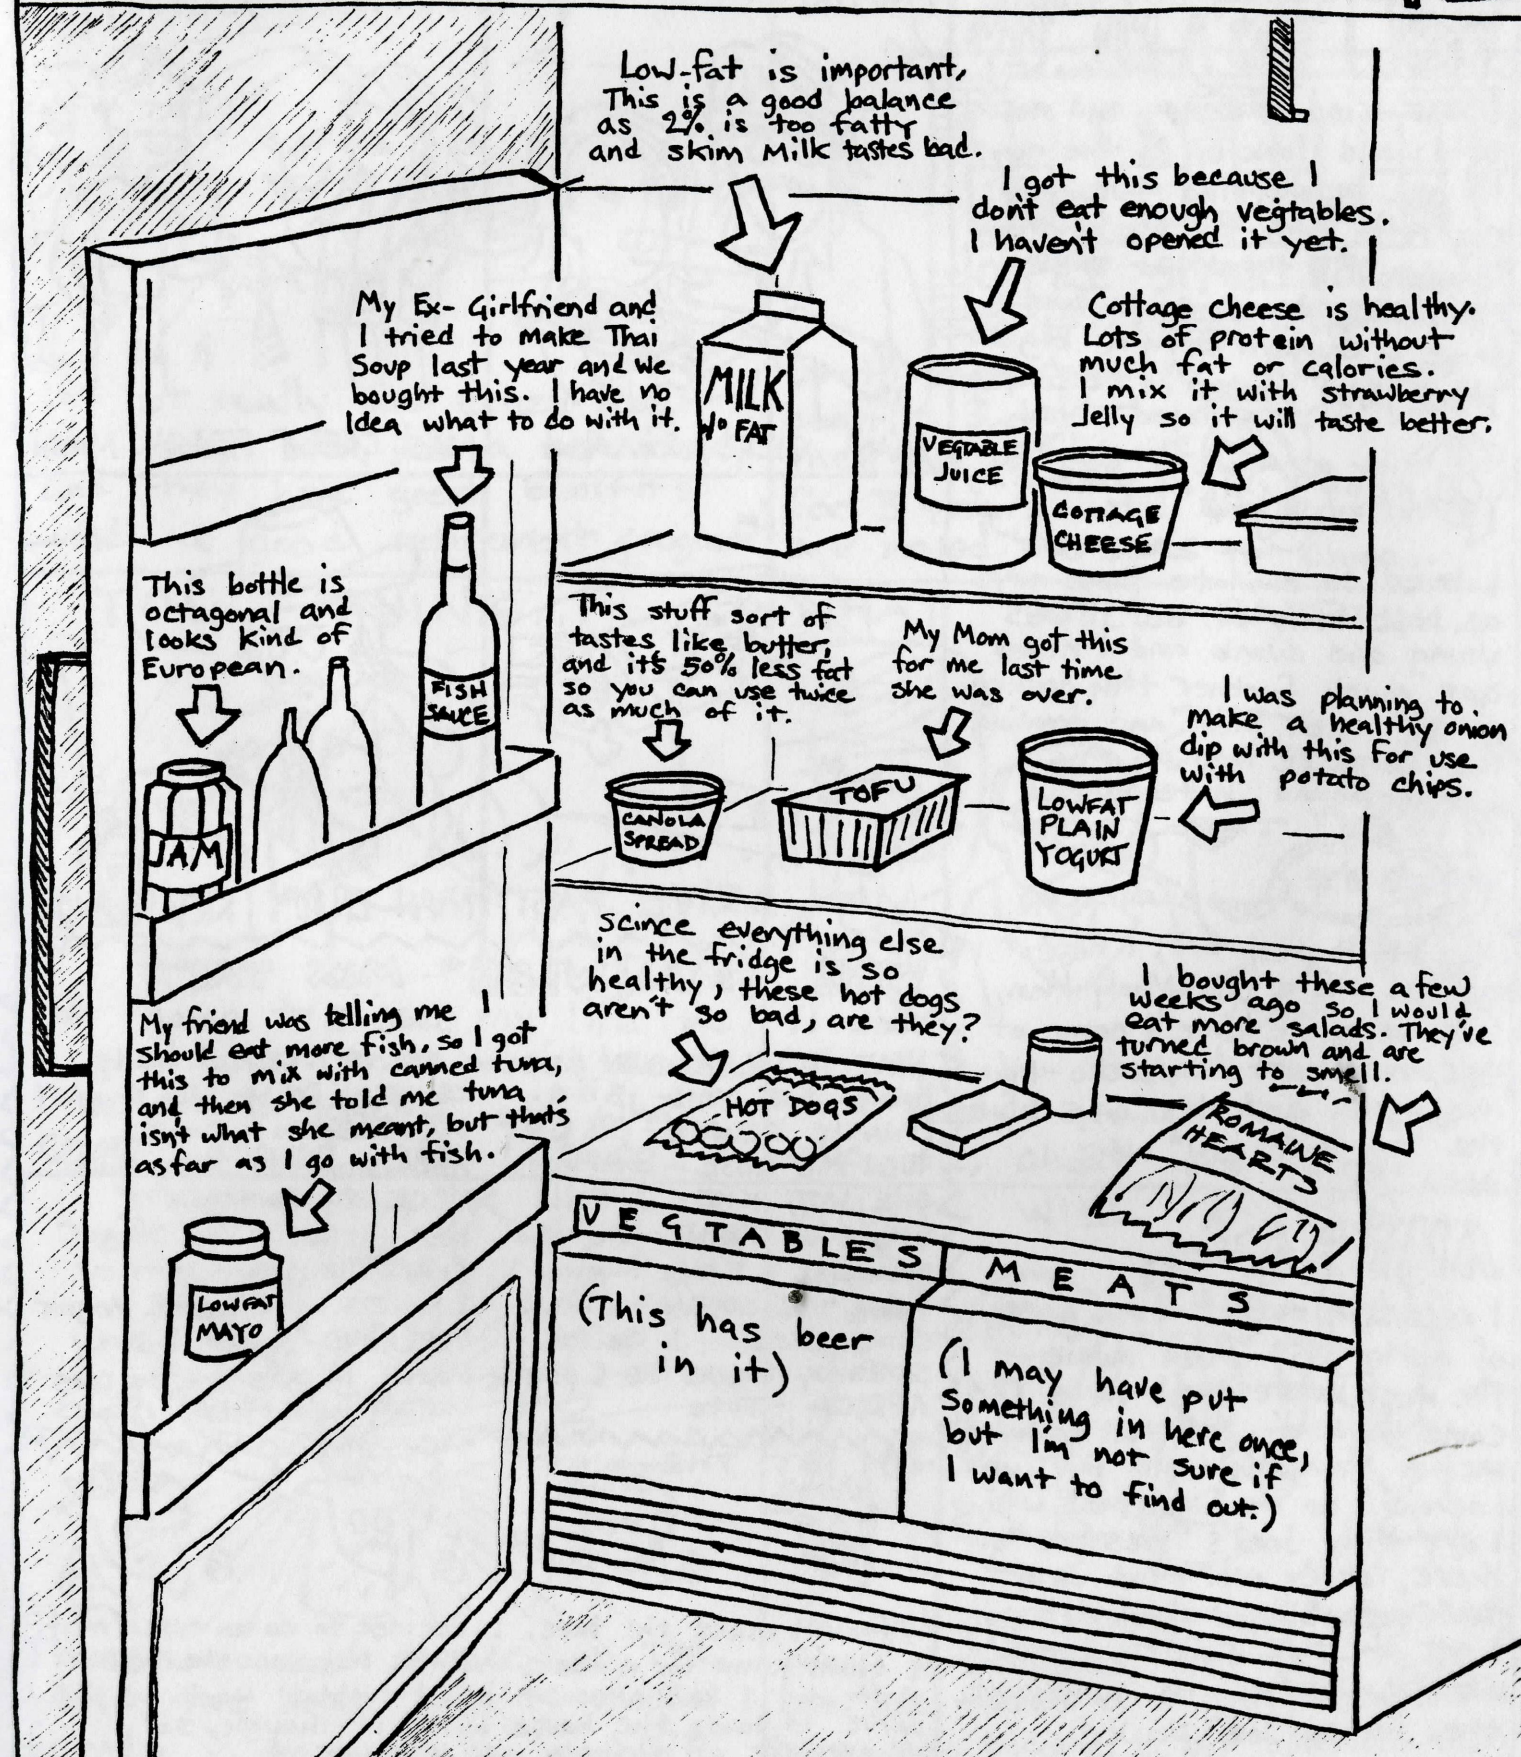 Low-fat is important,
This is a good balance
as 2% is too fatty
and skim Milk tastes bad.
I got this because I
don't eat enough vegtables.
I haven't opened it yet.
My Ex-Girlfriend and
I tried to make Thai
Soup last year and we
bought this. I have no
Idea what to do with it.
Cottage cheese is healthy.
Lots of protein without
much fat or calories.
I mix it with strawberry
Jelly so it will taste better.
MILK
FAT
VEGTABLE
JUICE
COTTAGE
CHEESE
This bottle is
octagonal and
looks kind of
European.
FISH
SAUCE
JAM
This stuff sort of
tastes like butter,
and it's 50% less fat
so you can use twice
as much of it.
My Mom got this
for me last time
she was over.
I was planning to
make a healthy onion
dip with this for use
with potato chips.
CANOLA
SPREAD
TOFU
LOWFAT
PLAIN
YOGURT
Scince everything else
in the fridge is so
healthy, these hot dogs
aren't so bad, are they?
I bought these a few
weeks ago so I would
eat more salads. They've
turned brown and are
starting to smell.
My friend was telling me I
should eat more fish, so I got
this to mix with canned tuna,
and then she told me tuna
isn't what she meant, but that's
as far as I go with fish.
HOT DOGS
ROMAINE
HEARTS
LOWFAT
MAYO
VEGTABLES
MEATS
(This has beer
in it)
(I may have put
Something in here once,
but I'm not sure if
I want to find out.)